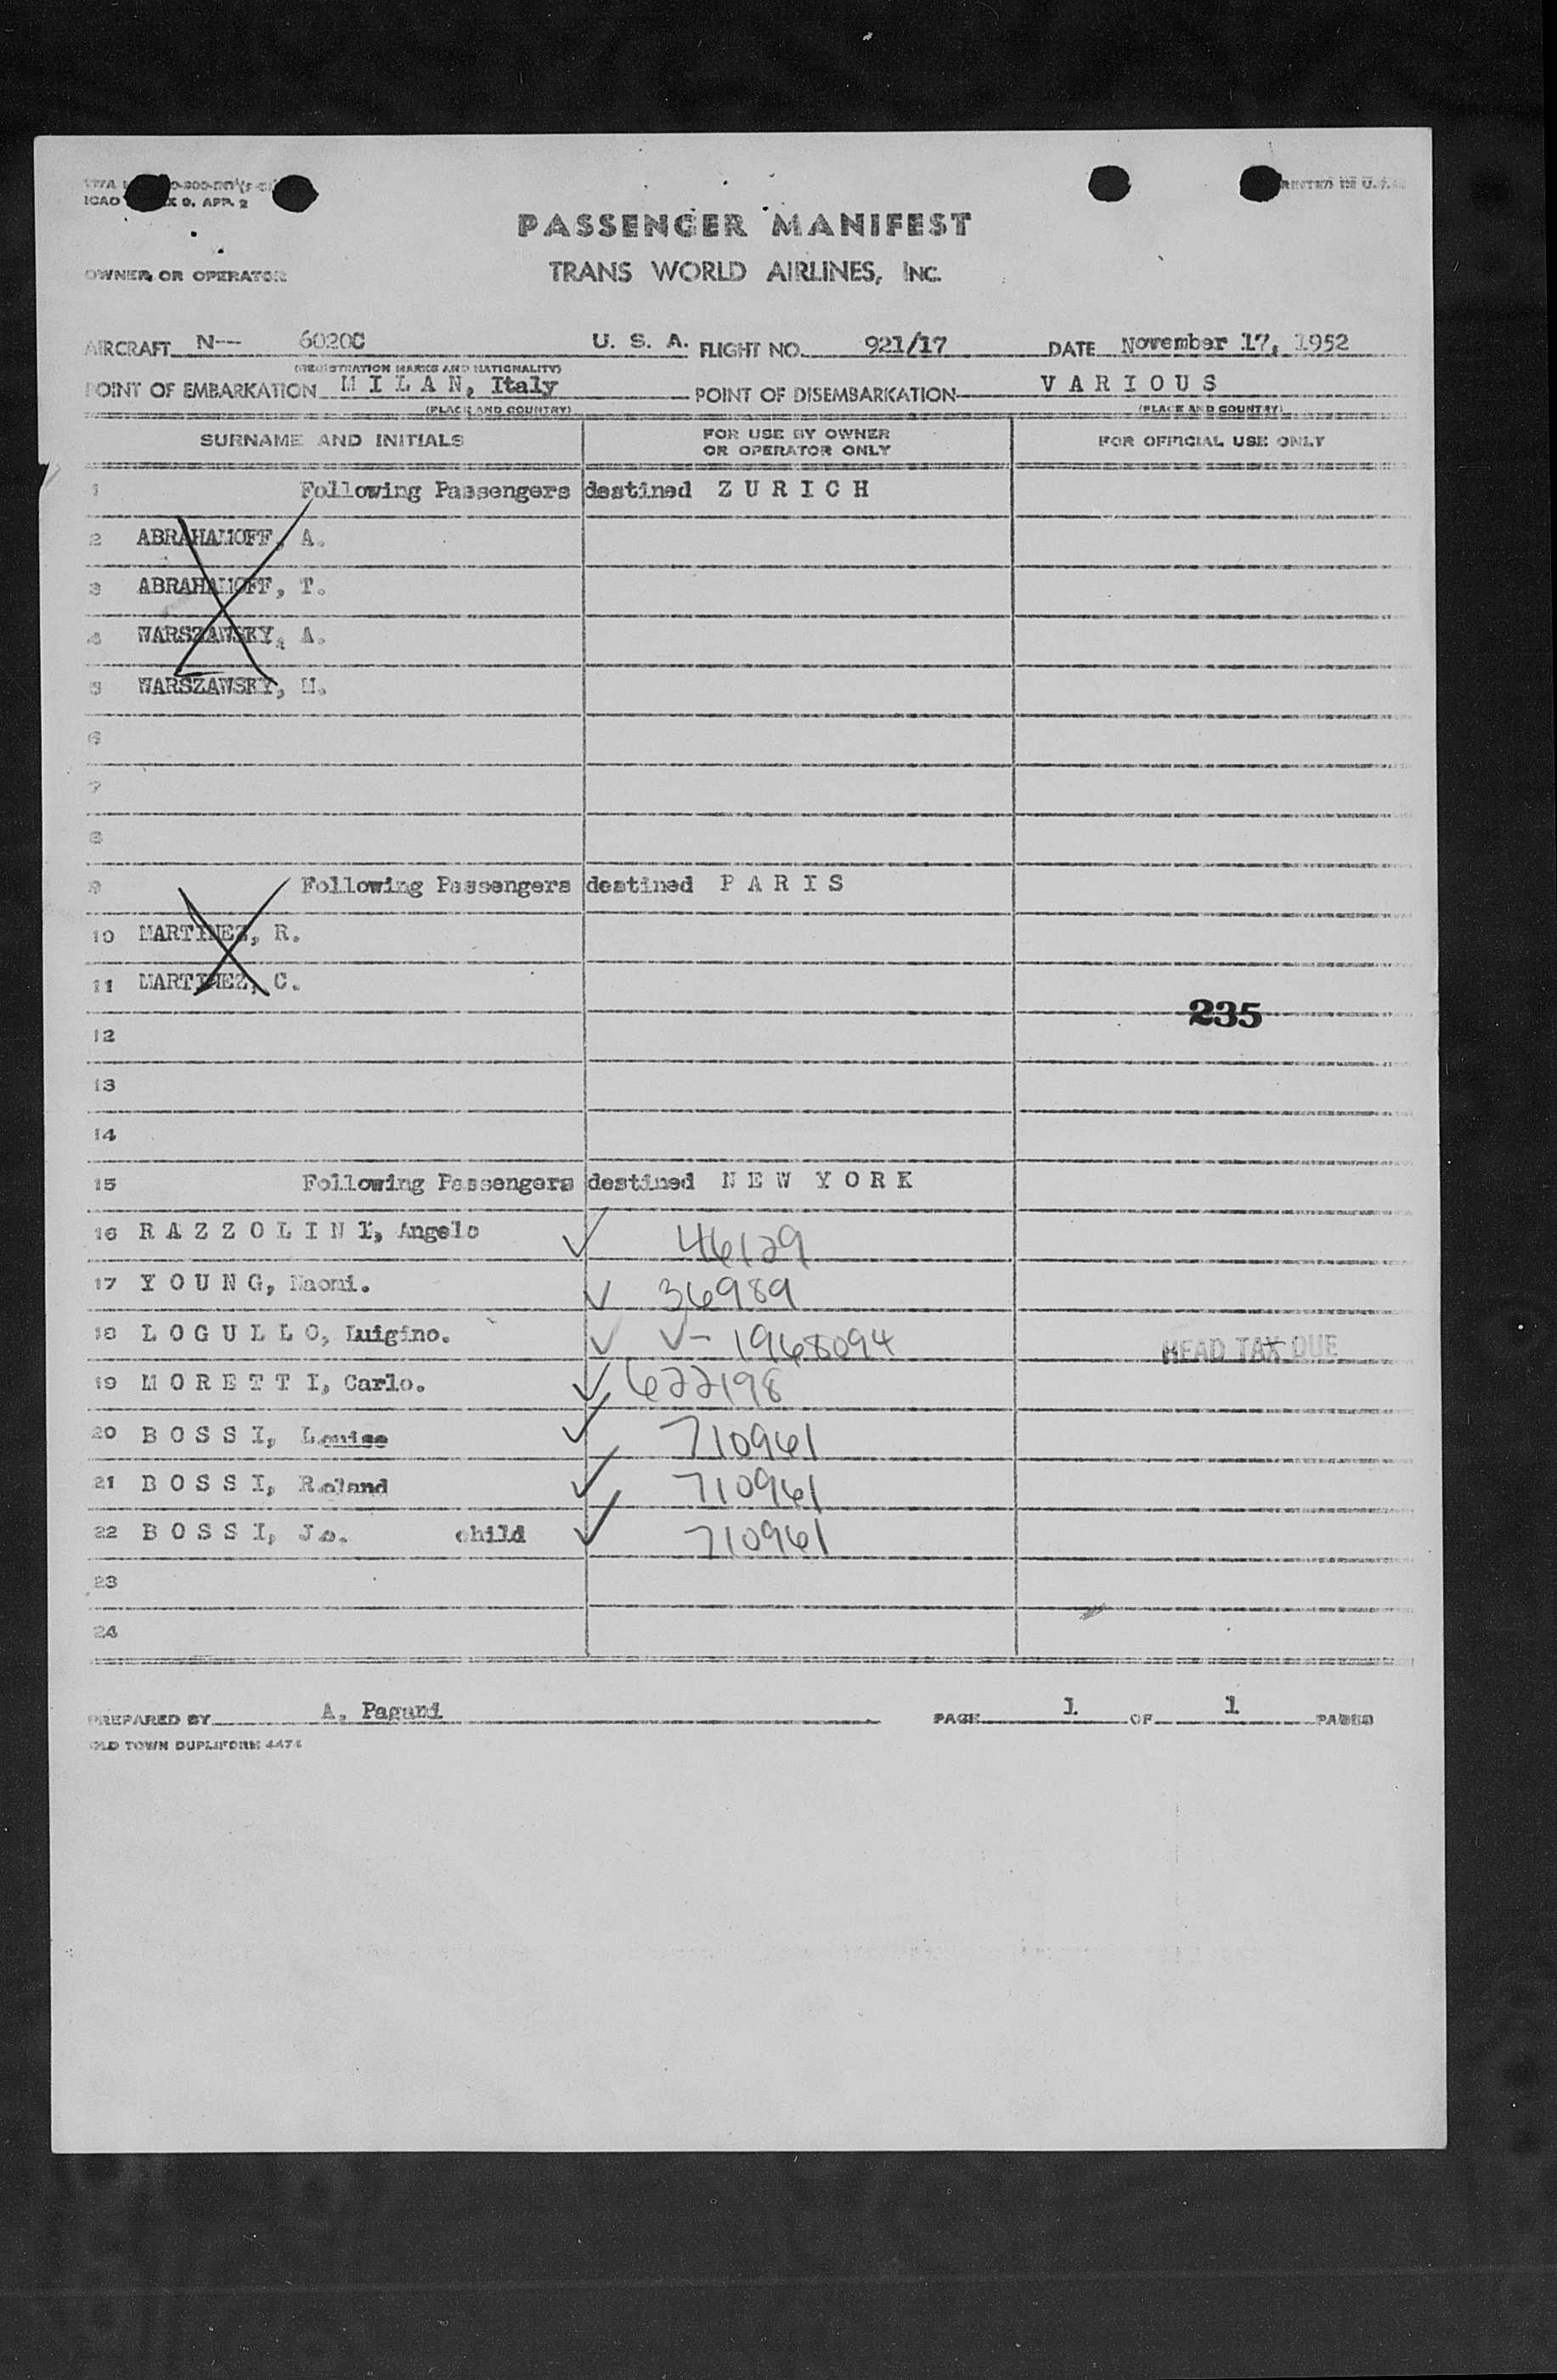 ICAO X 9, APP. 2
PRINTED IN U.S.A.
PASSENGER MANIFEST
OWNER OR OPERATOR TRANS WORLD AIRLINES, INC.
AIRCRAFT N— 6020C U. S. A. FLIGHT NO. 921/17 DATE November 17, 1952
(REGISTRATION MARKS AND NATIONALITY)
POINT OF EMBARKATION M I L A N, Italy POINT OF DISEMBARKATION V A R I O U S
(PLACE AND COUNTRY) (PLACE AND COUNTRY)
SURNAME AND INITIALS FOR USE BY OWNER OR OPERATOR ONLY FOR OFFICIAL USE ONLY
1 Following Passengers destined Z U R I C H
2 ABRAHAMOFF, A.
3 ABRAHAMOFF, T.
4 WARSZAWSKY, A.
5 WARSZAWSKY, M.
6
7
8
9 Following Passengers destined P A R I S
10 MARTINEZ, R.
11 MARTINEZ, C.
235
12
13
14
15 Following Passengers destined N E W Y O R K
16 R A Z Z O L I N I, Angelo ✓ 46129
17 Y O U N G, Naomi. ✓ 36989
18 L O G U L L O, Luigino. ✓ ✓- 1968094 HEAD TAX DUE
19 M O R E T T I, Carlo. ✓ 622198
20 B O S S I, Louise ✓ 710961
21 B O S S I, Roland ✓ 710961
22 B O S S I, Jo. child ✓ 710961
23
24
PREPARED BY A. Pagani PAGE 1 OF 1 PAGES
OLD TOWN DUPLIFORM 4474